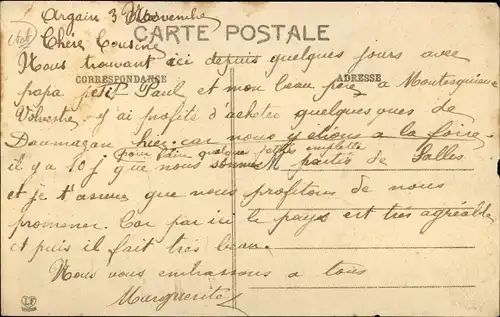 Argain 3 Novembre
CARTE POSTALE
Chère Cousine
Nous trouvant ici depuis quelques jours avec
CORRESPONDANCE
ADRESSE
papa petit Paul et mon beau père à Montesquieu
Volvestre j'ai profité d'acheter quelques vues de
Daumazan hier. car nous y étions a la foire
pour faire quelques petites emplette
il y a 10 j que nous sommes partis de Salles
et je t'assure que nous profitons de nous
promener. Car par ici le pays est très agréable
et puis il fait très beau.
Nous vous embrassons a tous
Marguerite
LF